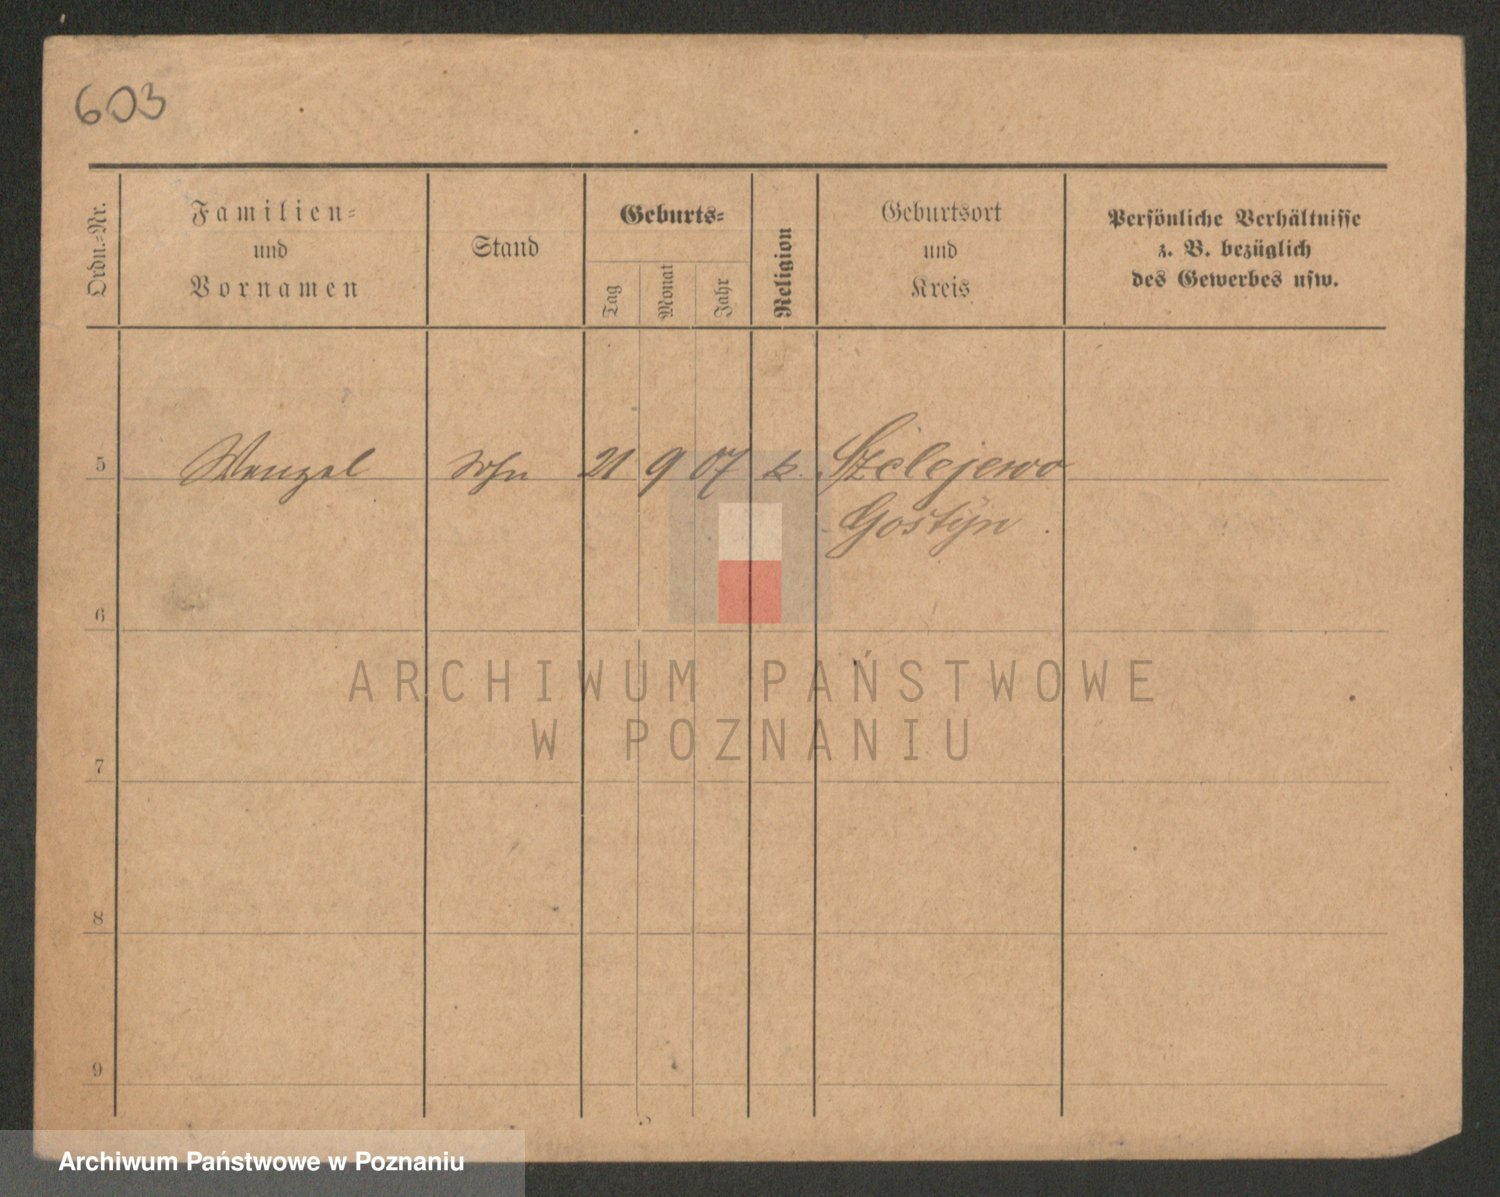 603
Ordn.-Nr.
Familien-
und
Vornamen
Stand
Geburts-
Tag
Monat
Jahr
Religion
Geburtsort
und
Kreis
Persönliche Verhältnisse
z. B. bezüglich
des Gewerbes usw.
5 Wenzel Sohn 21 9 07 k. Szelejewo
Gostyn.
6
ARCHIWUM PAŃSTWOWE
W POZNANIU
7
8
9
Archiwum Państwowe w Poznaniu